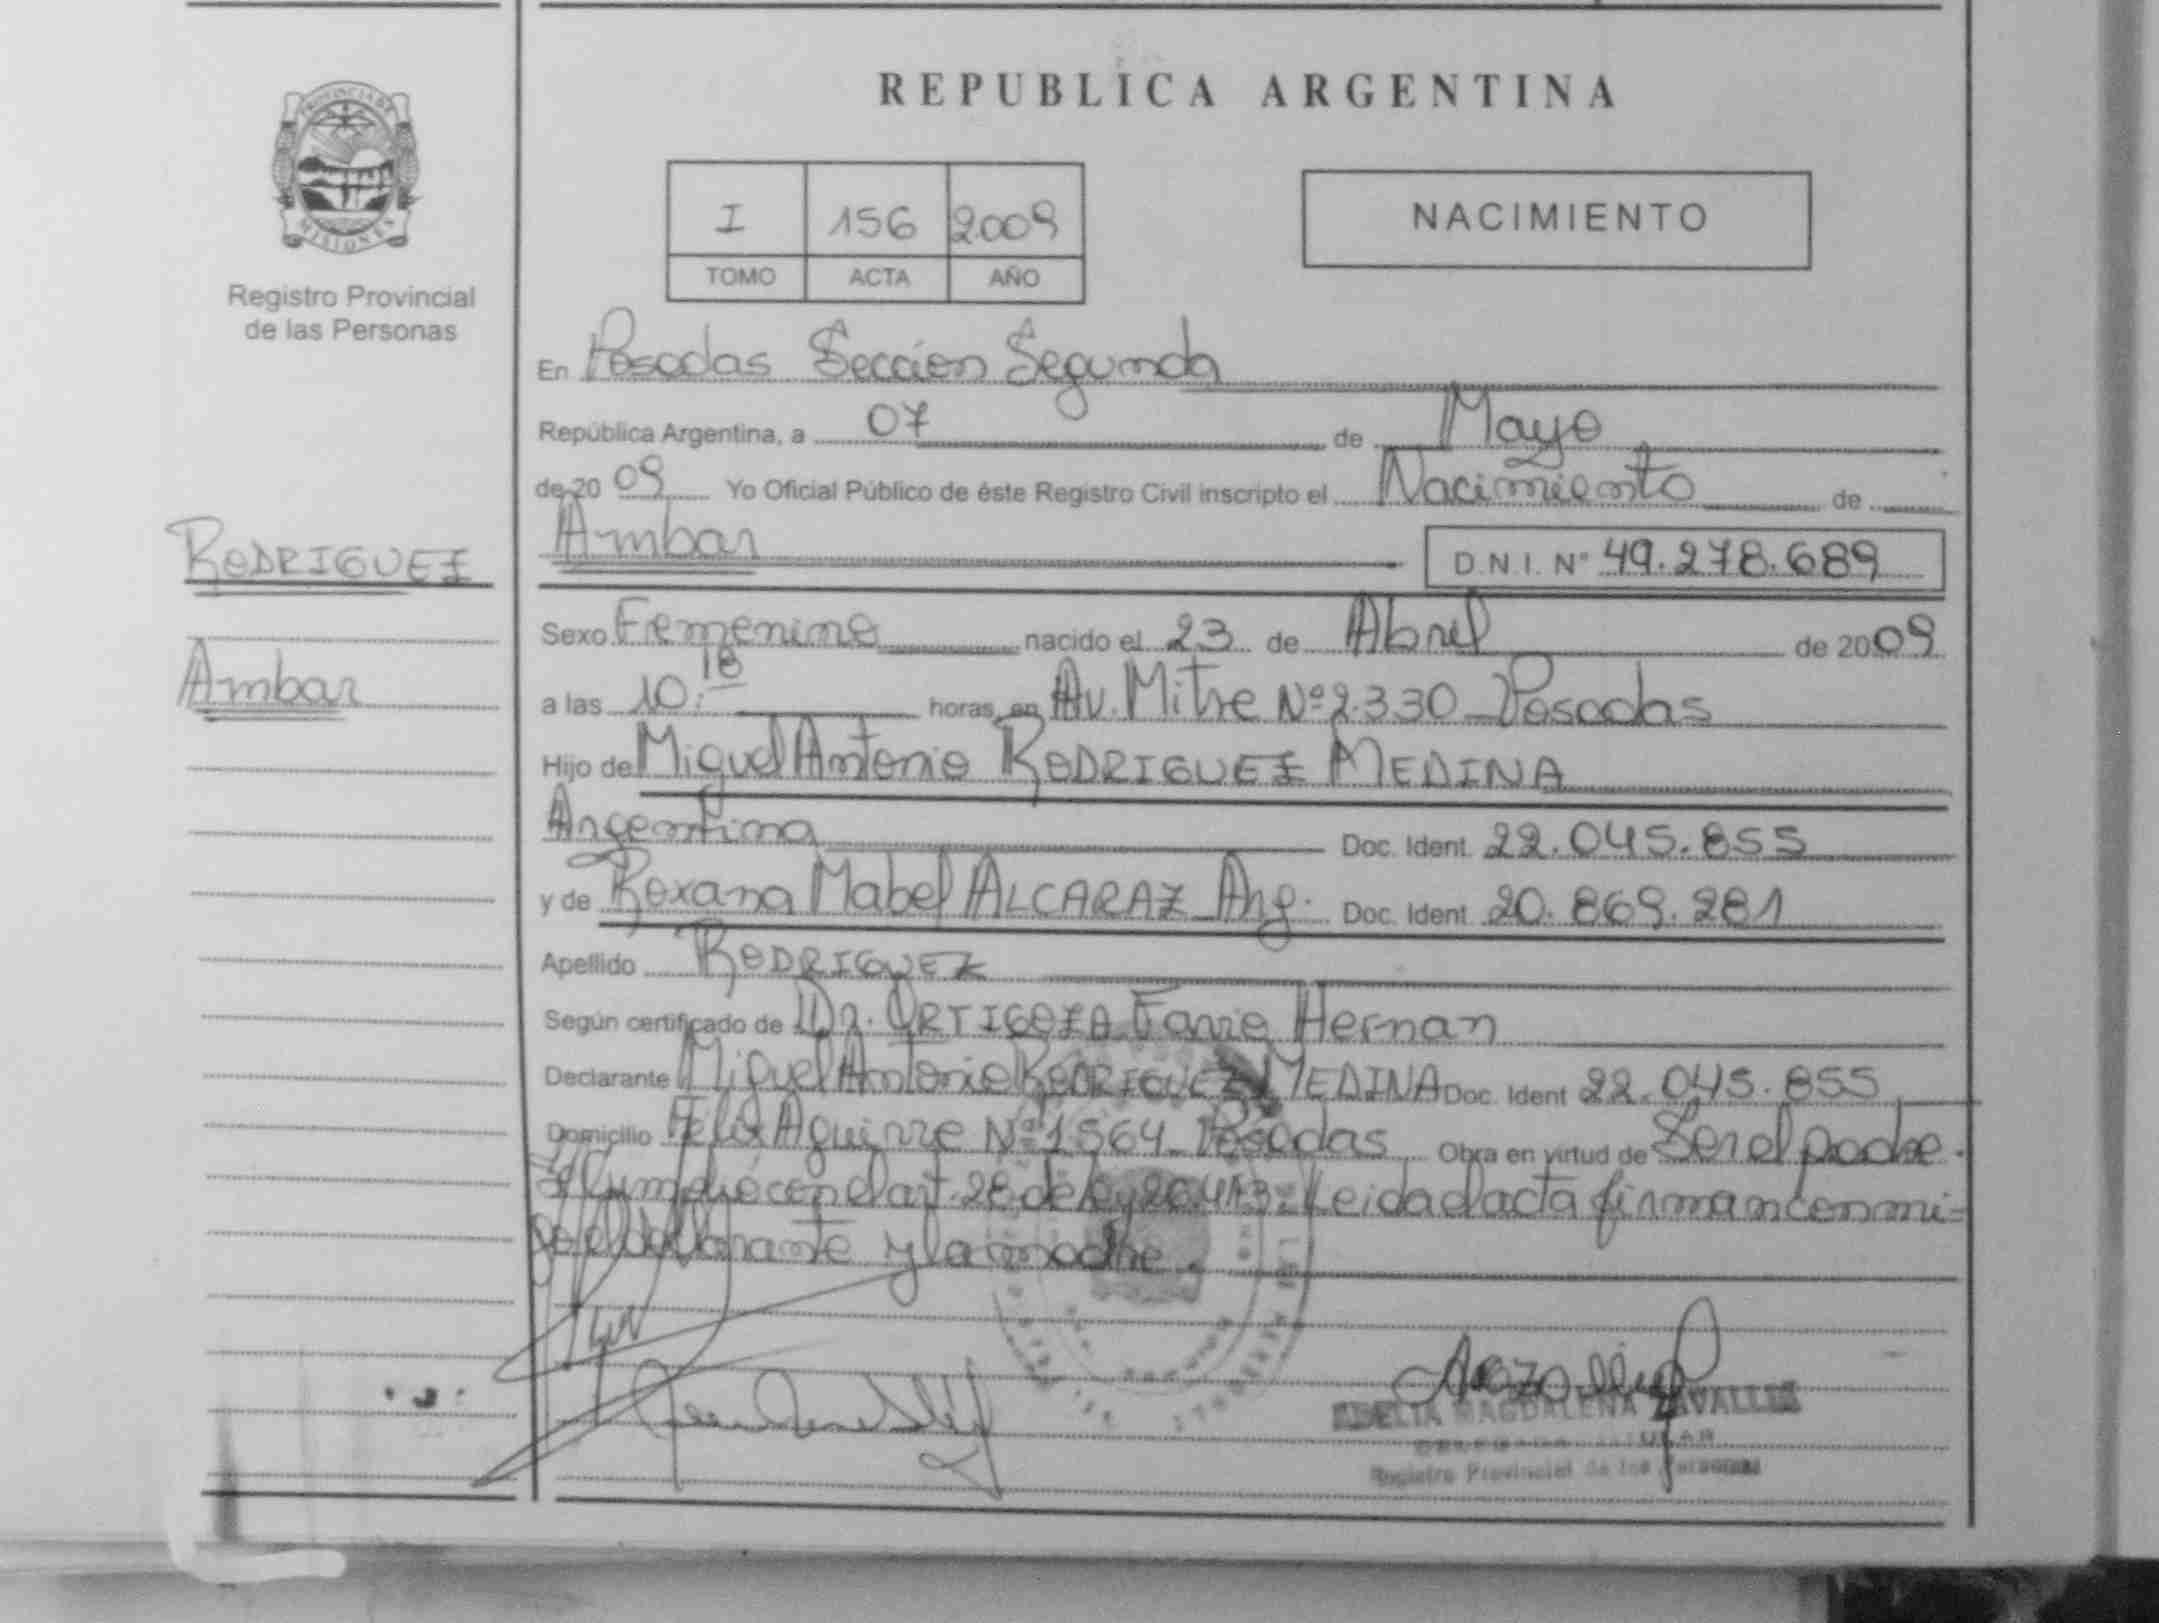 REPUBLICA ARGENTINA
PROVINCIA DE
MISIONES
Registro Provincial
de las Personas
I 156 2009
TOMO ACTA AÑO
NACIMIENTO
En Posadas Sección Segunda
República Argentina, a 07 de Mayo
de 20 09 Yo Oficial Público de éste Registro Civil inscripto el Nacimiento de
RODRIGUEZ
Ambar
Ambar D.N.I. Nº 49.278.689
Sexo Femenino nacido el 23 de Abril de 2009
a las 10:18 horas, en Av. Mitre Nº 2.330 Posadas
Hijo de Miguel Antonio RODRIGUEZ MEDINA
Argentina Doc. Ident. 22.045.855
y de Roxana Mabel ALCARAZ Arg. Doc. Ident. 20.869.281
Apellido RODRIGUEZ
Según certificado de Dr. ORTIGOZA Hernan
Declarante Miguel Antonio RODRIGUEZ MEDINA Doc. Ident 22.045.855
Domicilio Felix Aguirre Nº 1564 Posadas Obra en virtud de Ser el padre.
con el art. 28 de ley 26.413 Leida el acta firman conmi-
go el declarante y la madre.
ADELIA MAGDALENA ZAVALLIZ
TITULAR
Registro Provincial de las Personas